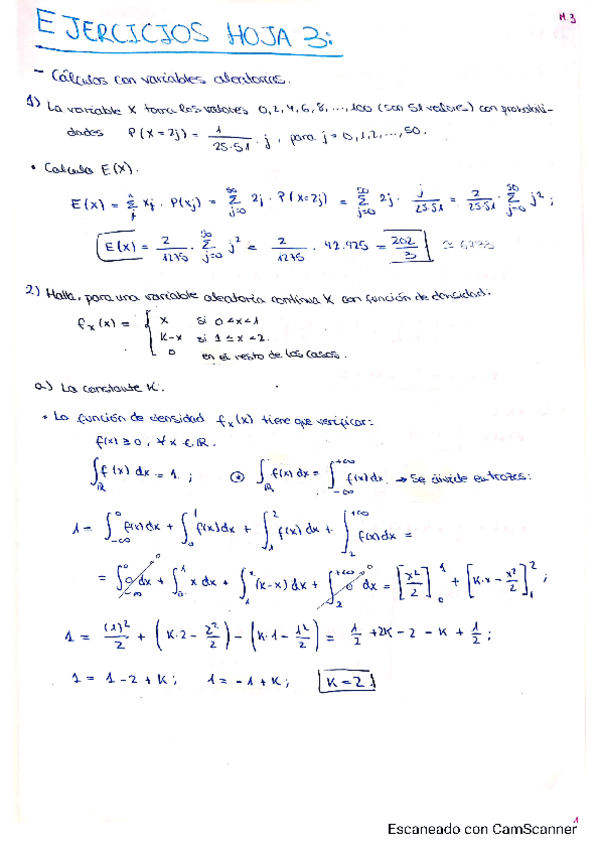 EJERCICIOS HOJA 3:
H.3
- Cálculos con variables aleatorias.
1) La variable X toma los valores 0, 2, 4, 6, 8, ..., 100 (son 51 valores) con probabili-
dades P(X=2j) = 1/(25·51) · j, para j = 0, 1, 2, ..., 50.
• Calculo E(X).
E(X) = Σ xj · P(xj) = Σ_{j=0}^{50} 2j · P(X=2j) = Σ_{j=0}^{50} 2j · j/(25·51) = 2/(25·51) · Σ_{j=0}^{50} j² ;
E(X) = 2/1275 · Σ_{j=0}^{50} j² = 2/1275 · 42.925 = 202/3
2) Halla, para una variable aleatoria continua X con función de densidad:
fx(x) = { x si 0<x<1
K-x si 1≤x<2.
0 en el resto de los casos.
a) La constante K.
• La función de densidad fx(x) tiene que verificar:
f(x) ≥ 0, ∀x ∈ ℝ.
∫_ℝ f(x) dx = 1. ; ∫_ℝ f(x) dx = ∫_{-∞}^{+∞} f(x) dx. → Se divide en trozos:
1 = ∫_{-∞}^{0} f(x) dx + ∫_0^1 f(x) dx + ∫_1^2 f(x) dx + ∫_2^{+∞} f(x) dx =
= ∫_{-∞}^{0} 0 dx + ∫_0^1 x dx + ∫_1^2 (K-x) dx + ∫_2^{+∞} 0 dx = [x²/2]_0^1 + [K·x - x²/2]_1^2 ;
1 = (1)²/2 + (K·2 - 2²/2) - (K·1 - 1²/2) = 1/2 + 2K - 2 - K + 1/2 ;
1 = 1 - 2 + K ; 1 = -1 + K ; K = 2
1
Escaneado con CamScanner